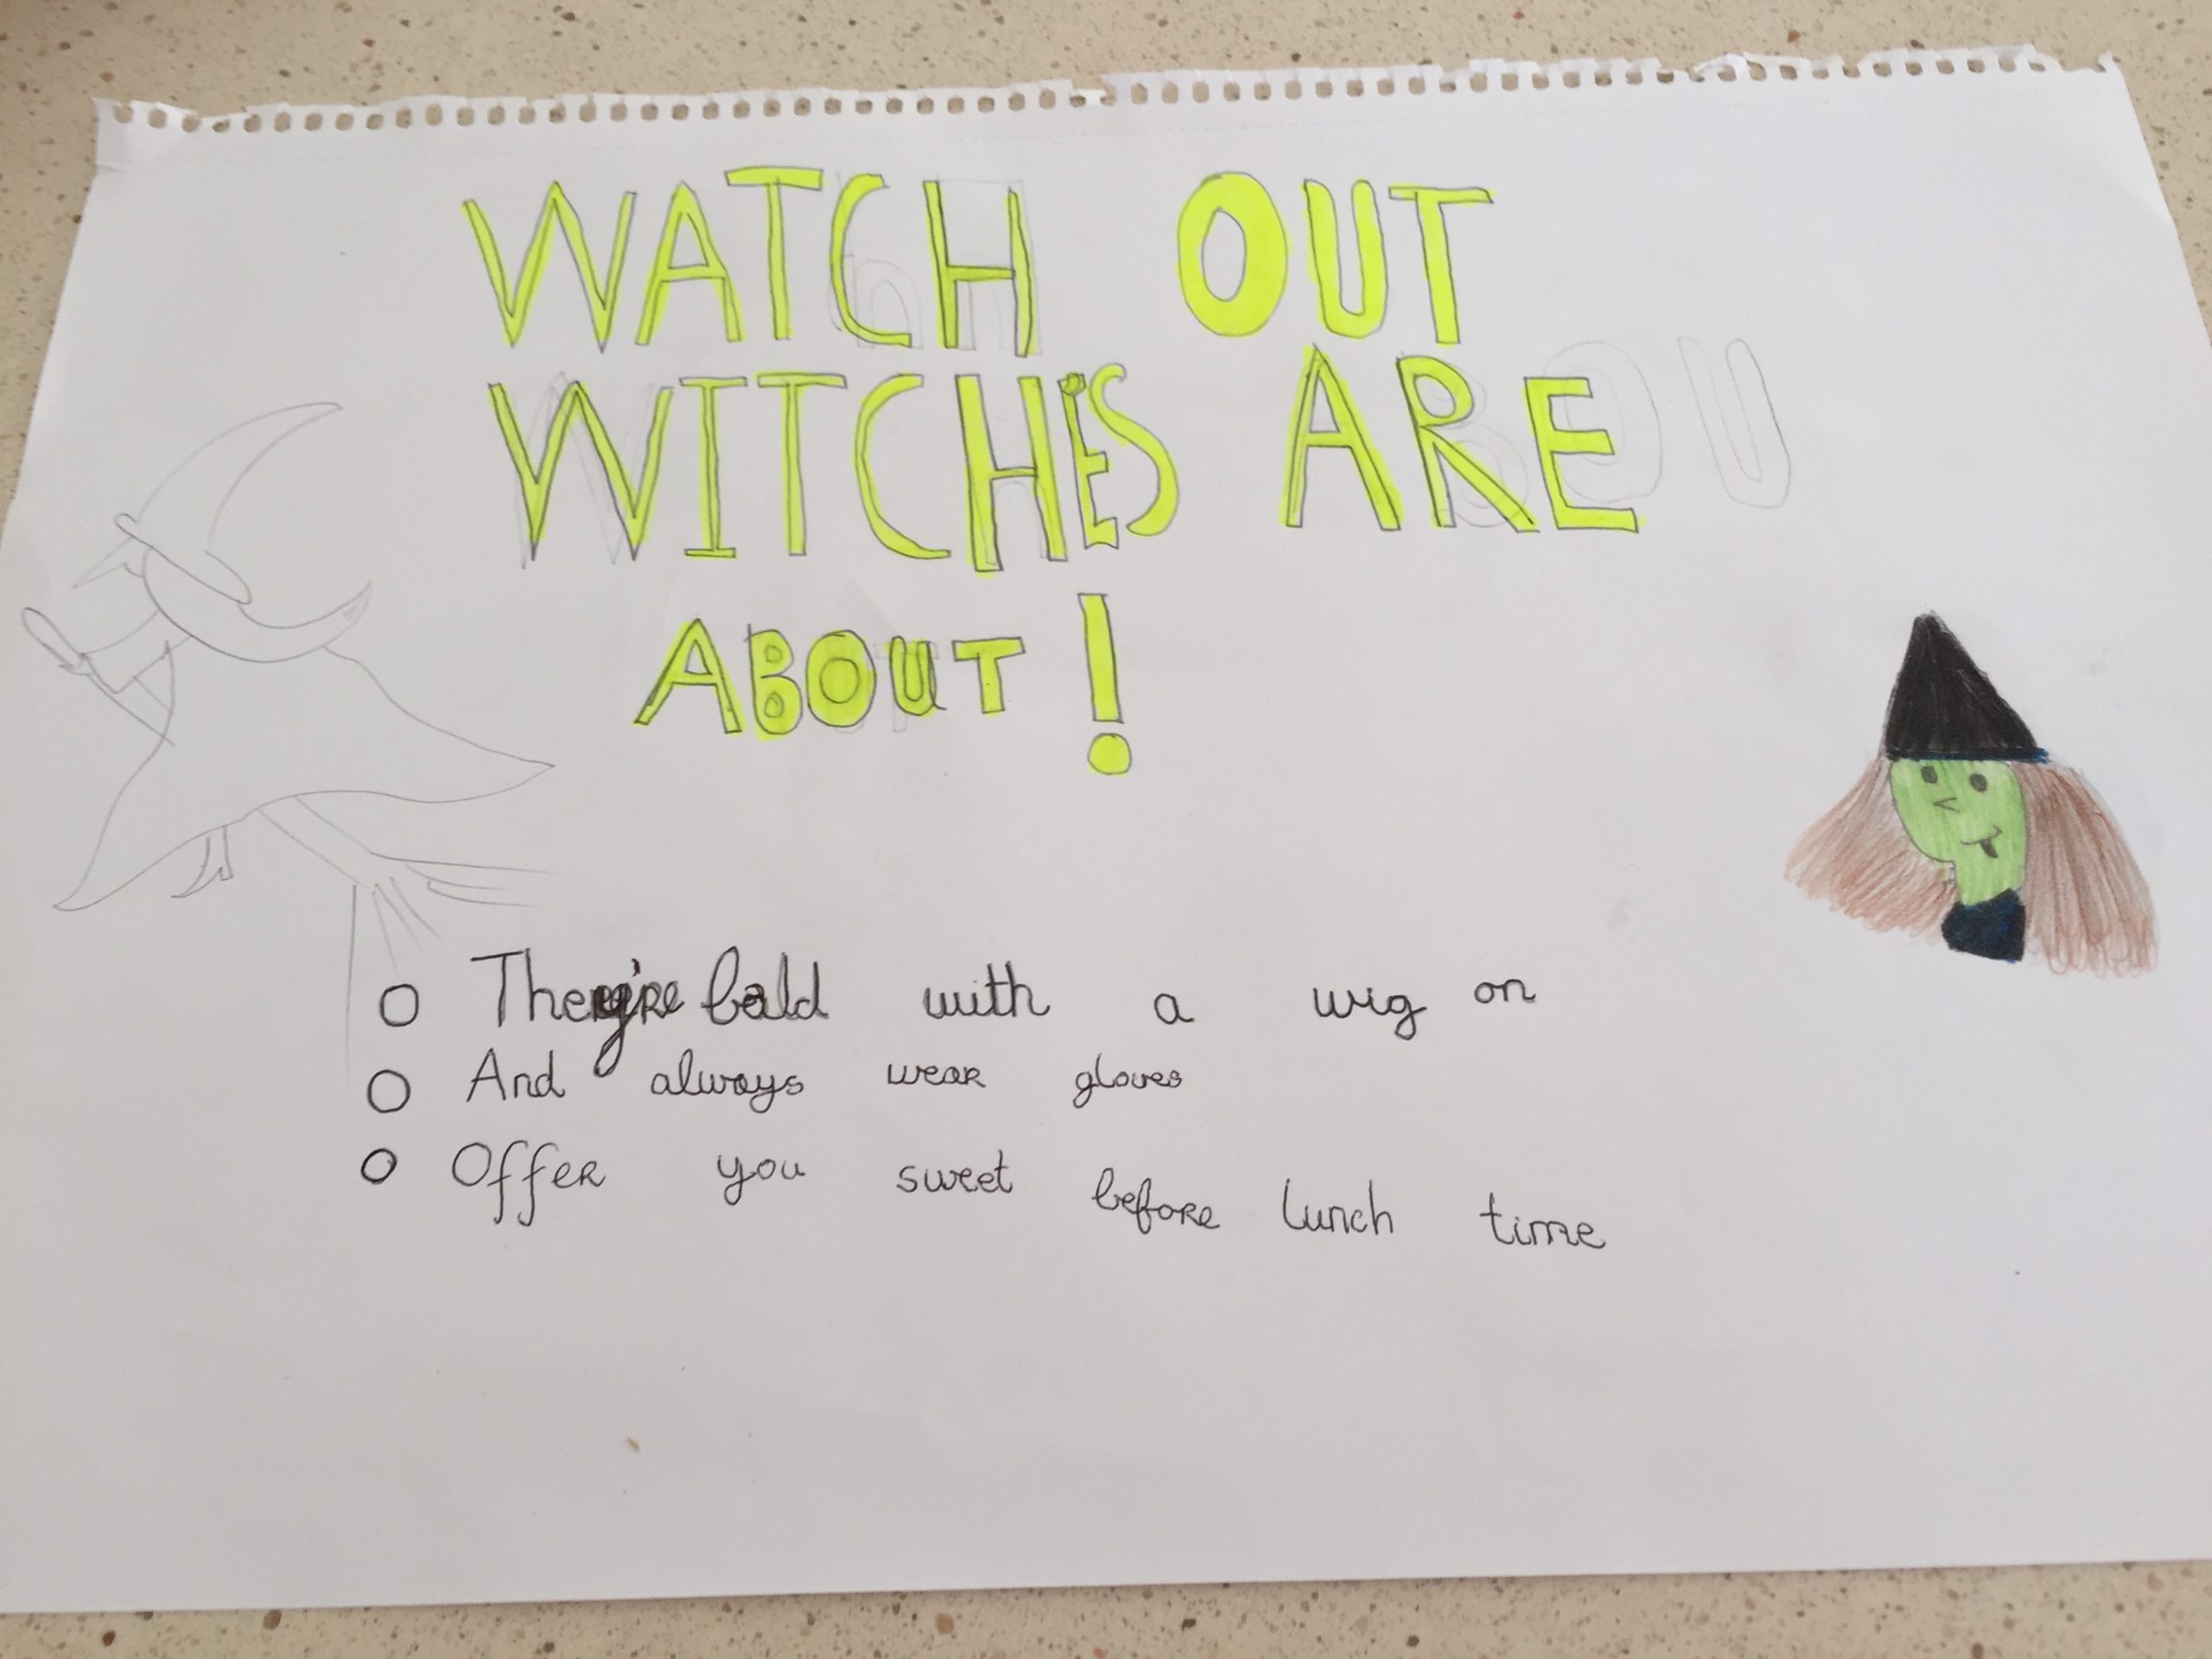 WATCH OUT
WITCHES ARE
ABOUT!
O They're bald with a wig on
O And always wear gloves
O Offer you sweet before lunch time